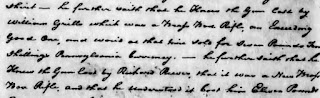 Shirt — he further saith that he Knew the Gun Cast by
William Griffis which was a Neaps Wore Rifle, an Exceeding
Good One, and word as him sold for Seven Pounds Ten
Shillings Pennsylvania Currency. — he further saith that he
Knew the Gun Cast by Richard Reeves, that it was a New
Wore Rifle, and that he understood it cost him Eleven Pounds